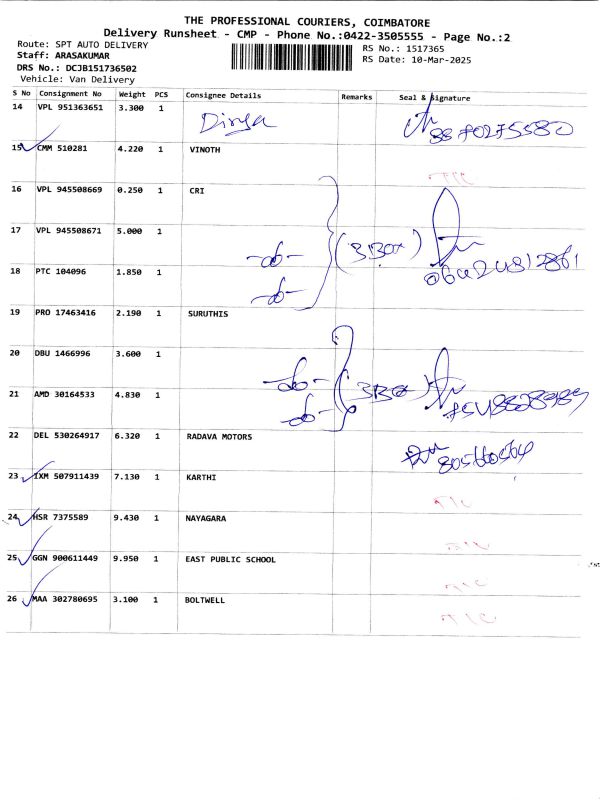 THE PROFESSIONAL COURIERS, COIMBATORE
Delivery Runsheet - CMP - Phone No.:0422-3505555 - Page No.:2
Route: SPT AUTO DELIVERY RS No.: 1517365
Staff: ARASAKUMAR RS Date: 10-Mar-2025
DRS No.: DCJB151736502
Vehicle: Van Delivery
S No Consignment No Weight PCS Consignee Details Remarks Seal & Signature
14 VPL 951363651 3.300 1 Divya 8870275580
15 CMM 510281 4.220 1 VINOTH
16 VPL 945508669 0.250 1 CRI
17 VPL 945508671 5.000 1 -do- (3 Box)
18 PTC 104096 1.850 1 -do-
19 PRO 17463416 2.190 1 SURUTHIS
20 DBU 1466996 3.600 1
21 AMD 30164533 4.830 1 -do- (3 Box)
-do-
22 DEL 530264917 6.320 1 RADAVA MOTORS
23 IXM 507911439 7.130 1 KARTHI
24 HSR 7375589 9.430 1 NAYAGARA
25 GGN 900611449 9.950 1 EAST PUBLIC SCHOOL
26 MAA 302780695 3.100 1 BOLTWELL